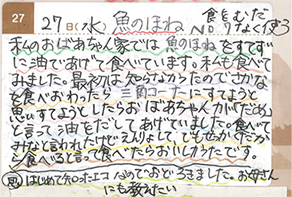 27
27日(水) 魚のほね 食をむだ
なく使う
私のおばあちゃん家では魚のほねをすてず
に油であげて食べています。私も食べて
みました。最初は知らなかったのでさかな
を食べおわったら三角コーナーにすてようと
思いすてようとしたらおばあちゃんが「だめ」
と言って油をだしてあげていました。食べて
みなと言われたけどえんりょして、でもせっかくだか
ら食べると言って食べたらおいしかったです。
はじめて知ったエコなのでおどろきました。お母さん
にも教えたい